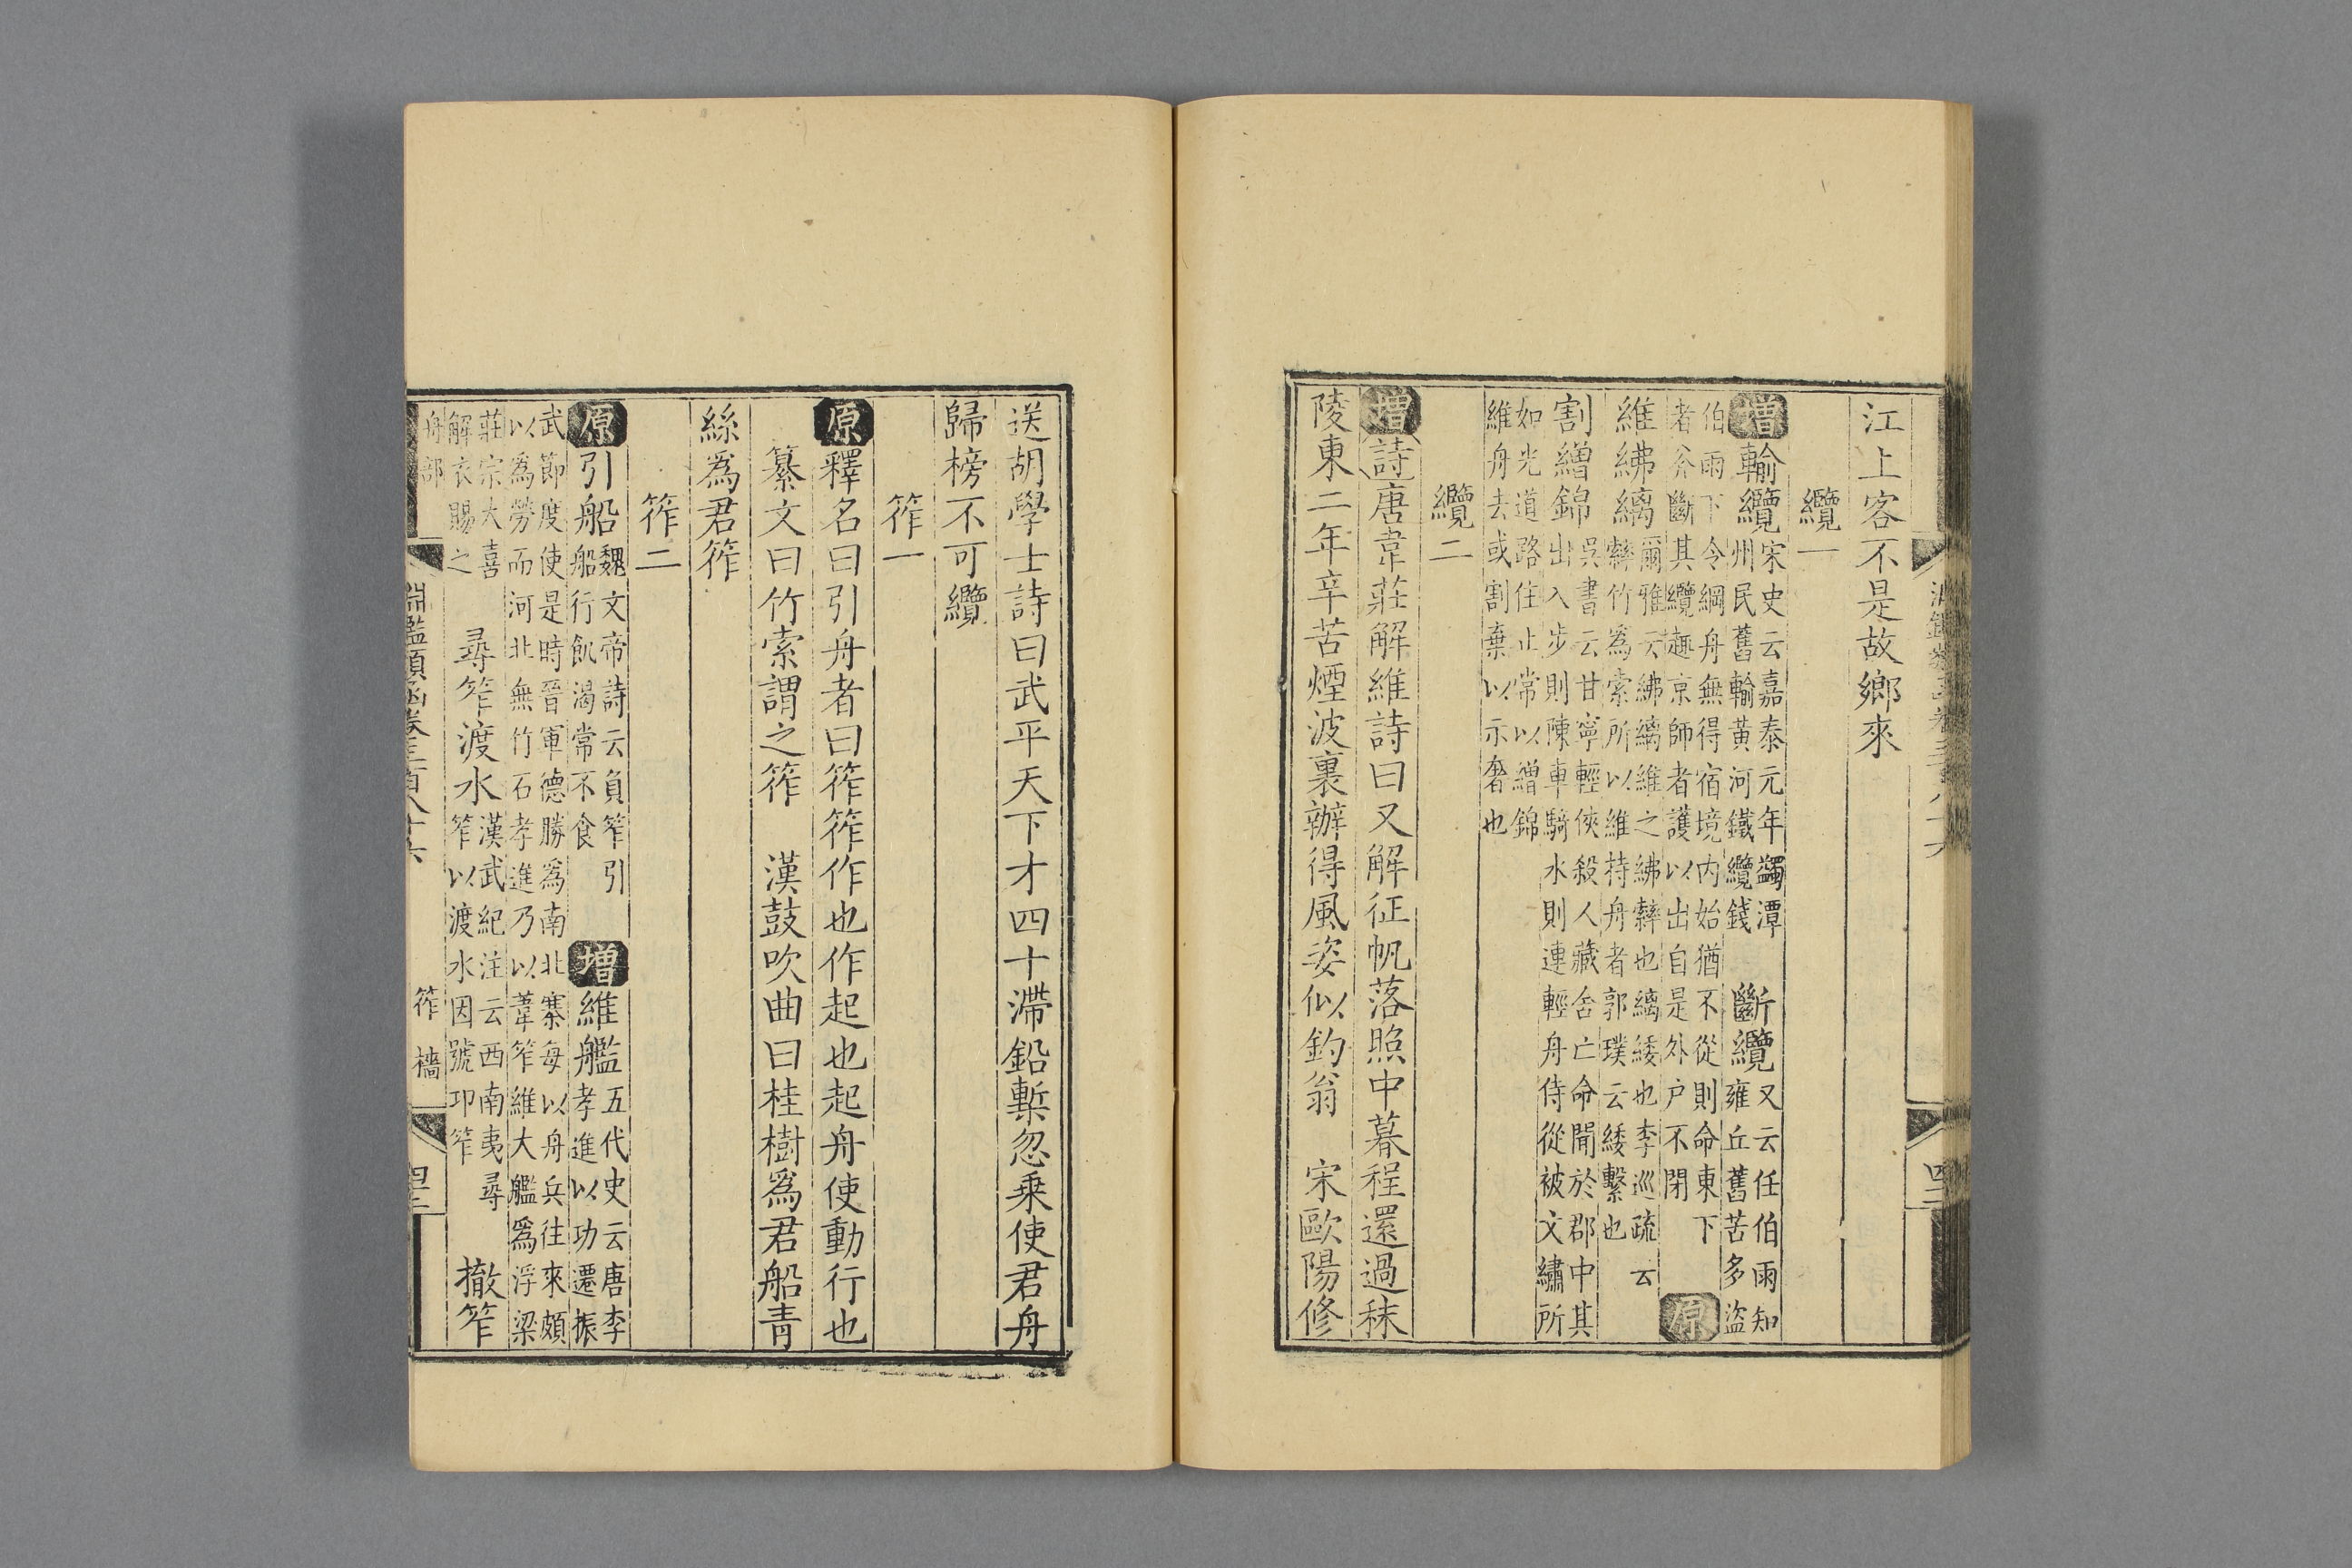 江上客不是故鄉來
纜一
增輸纜宋史云嘉泰元年蠲潭州民舊輸黃河鐵纜錢 斷纜又云任伯雨知雍丘舊苦多盜
伯雨下令綱舟無得宿境内始猶不從則命東下者斧斷其纜趣京師者護以出自是外户不閉 原
維紼縭爾雅云紼縭維之紼繂也縭緌也李巡疏云繂竹為索所以維持舟者郭璞云緌繫也
割繒錦吳書云甘寧輕俠殺人藏舍亡命聞於郡中其出入步則陳車騎水則連輕舟侍從被文繡所
如光道路住止常以繒錦維舟去或割棄以示奢也
纜二
增詩唐韋莊解維詩曰又解征帆落照中暮程還過秣
陵東二年辛苦煙波裏辦得風姿似釣翁 宋歐陽修
送胡學士詩曰武平天下才四十滯鉛槧忽乗使君舟
歸榜不可纜
筰一
原釋名曰引舟者曰筰筰作也作起也起舟使動行也
纂文曰竹索謂之筰 漢鼓吹曲曰桂樹為君船青
絲為君筰
筰二
原引船魏文帝詩云負笮引船行飢渴常不食 增維艦五代史云唐李孝進以功遷振
武節度使是時晉軍德勝為南北寨每以舟兵往來頗以為勞而河北無竹石孝進乃以葦笮維大艦為浮梁
莊宗大喜解衣賜之 尋笮渡水漢武紀注云西南夷尋笮以渡水因號邛笮 撤笮
舟部
淵鑑類函卷三百八十六
筰 檣